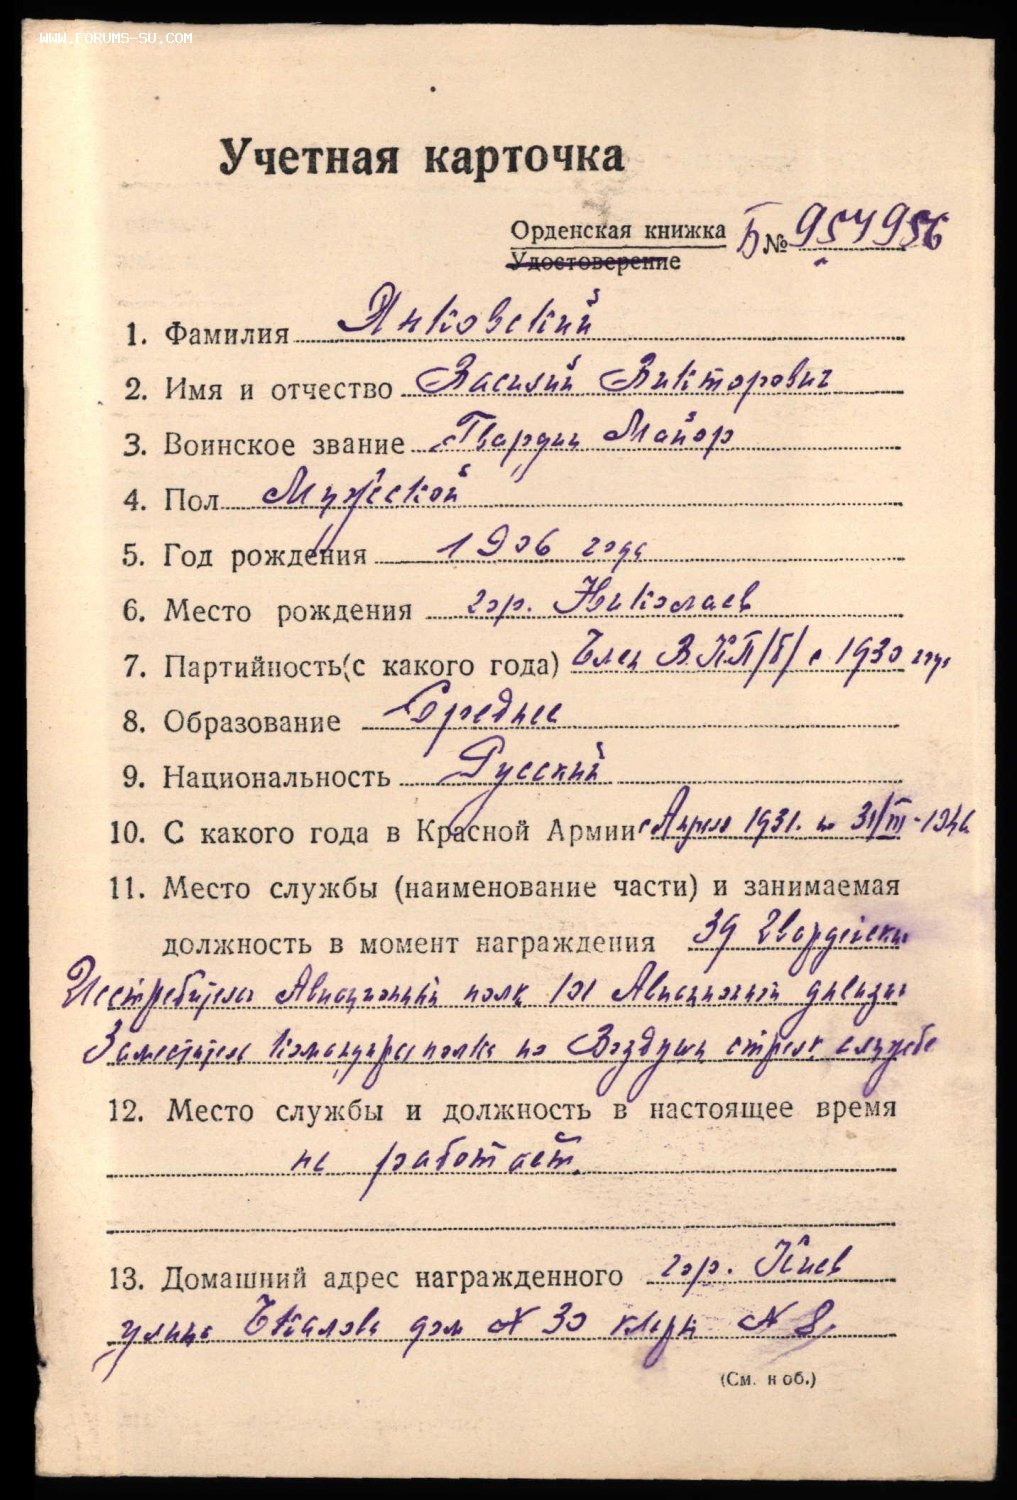 WWW.FORUMS-SU.COM
Учетная карточка
Орденская книжка Б № 954956
Удостоверение
1. Фамилия Янковский
2. Имя и отчество Василий Викторович
3. Воинское звание Гвардии Майор
4. Пол Мужской
5. Год рождения 1906 года
6. Место рождения гор. Николаев
7. Партийность (с какого года) Член ВКП/б/ с 1930 года
8. Образование Среднее
9. Национальность Русский
10. С какого года в Красной Армии с Апреля 1931. по 31/III-1946
11. Место службы (наименование части) и занимаемая
должность в момент награждения 39 Гвардейский
Истребител Авиационный полк 101 Авиационной дивизии
Заместитель командира полка по Воздушн стрелк службе
12. Место службы и должность в настоящее время
не работает.
13. Домашний адрес награжденного гор. Киев
улица Чкалова дом № 30 кварт № 8.
(См. на об.)